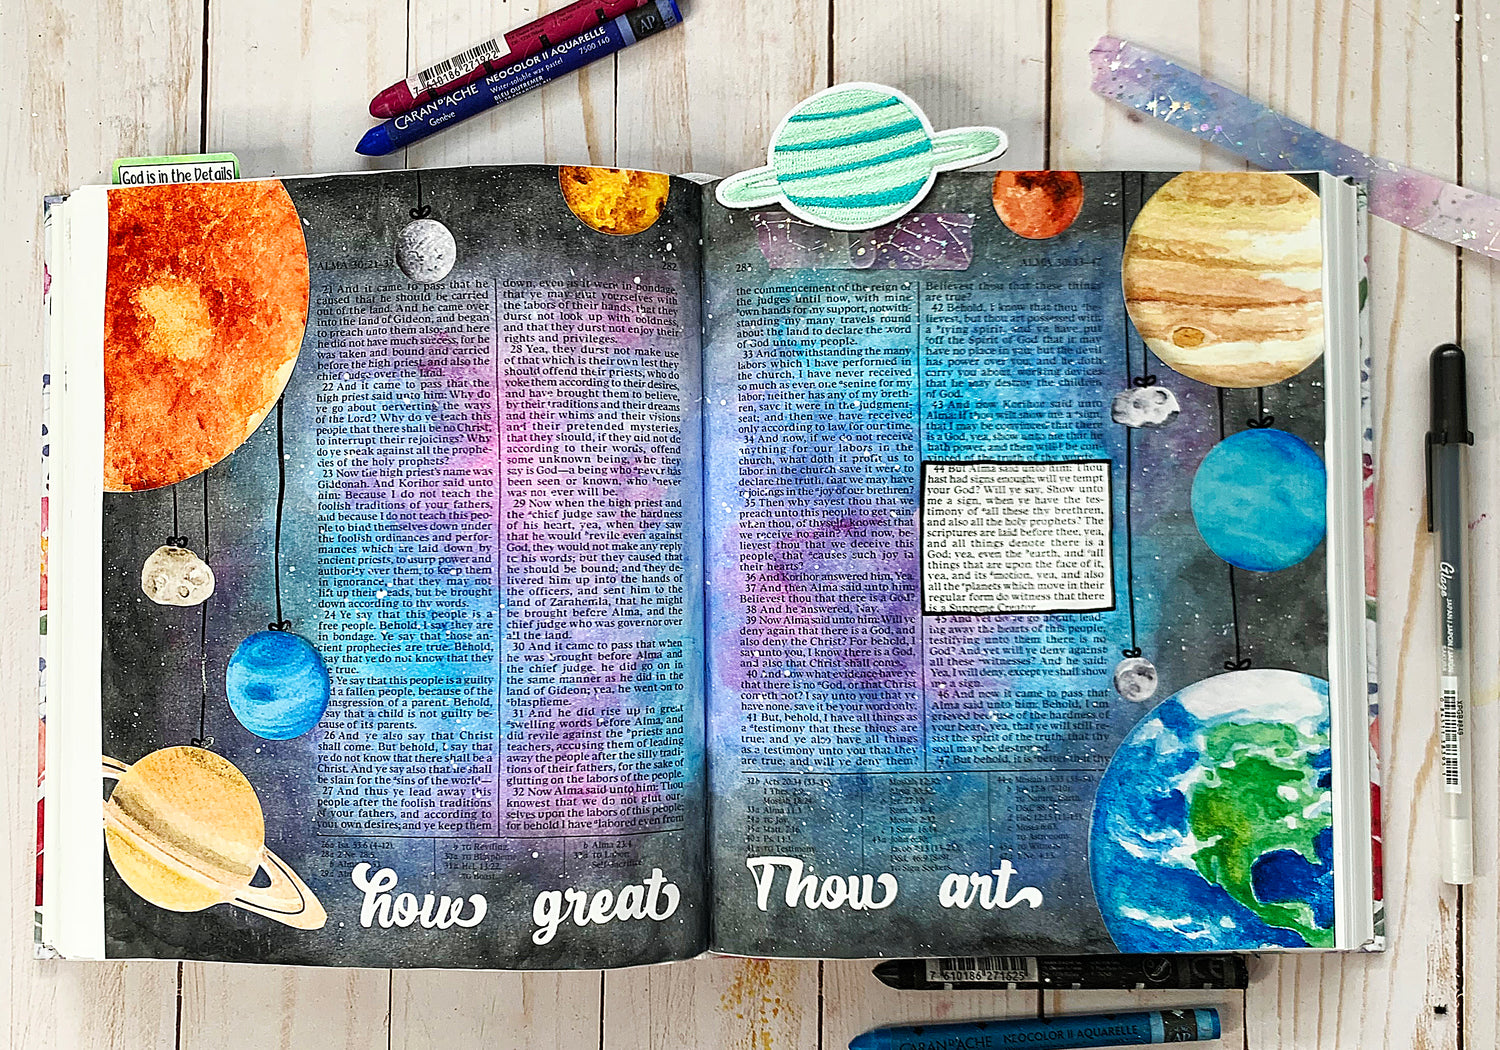 7 610186 271922
CARAN D'ACHE NEOCOLOR II AQUARELLE
Genève Water-soluble wax pastel 7500·140
BLEU OUTREMER
AP
God is in the Details
ALMA 30:21–32
282
21 And it came to pass that he
caused that he should be carried
out of the land. And he came over
into the land of Gideon, and began
to preach unto them also; and here
he did not have much success, for he
was taken and bound and carried
before the high priest, and also the
chief judge over the land.
22 And it came to pass that the
high priest said unto him: Why do
ye go about perverting the ways
of the Lord? Why do ye teach this
people that there shall be no Christ,
to interrupt their rejoicings? Why
do ye speak against all the prophe-
cies of the holy prophets?
23 Now the high priest's name was
Giddonah. And Korihor said unto
him: Because I do not teach the
foolish traditions of your fathers,
and because I do not teach this peo-
ple to bind themselves down under
the foolish ordinances and perfor-
mances which are laid down by
ancient priests, to usurp power and
authority over them, to keep them
in ignorance, that they may not
lift up their heads, but be brought
down according to thy words.
24 Ye say that this people is a
free people. Behold, I say they are
in bondage. Ye say that those an-
cient prophecies are true. Behold,
I say that ye do not know that they
are true.
Ye say that this people is a guilty
and a fallen people, because of the
transgression of a parent. Behold,
I say that a child is not guilty be-
cause of its parents.
26 And ye also say that Christ
shall come. But behold, I say that
ye do not know that there shall be a
Christ. And ye say also that he shall
be slain for the sins of the world—
27 And thus ye lead away this
people after the foolish traditions
of your fathers, and according to
your own desires; and ye keep them
down, even as it were in bondage,
that ye may glut yourselves with
the labors of their hands, that they
durst not look up with boldness,
and that they durst not enjoy their
rights and privileges.
28 Yea, they durst not make use
of that which is their own lest they
should offend their priests, who do
yoke them according to their desires,
and have brought them to believe,
by their traditions and their dreams
and their whims and their visions
and their pretended mysteries,
that they should, if they did not do
according to their words, offend
some unknown being, who they
say is God—a being who never has
been seen or known, who never
was nor ever will be.
29 Now when the high priest and
the chief judge saw the hardness
of his heart, yea, when they saw
that he would revile even against
God, they would not make any reply
to his words; but they caused that
he should be bound; and they de-
livered him up into the hands of
the officers, and sent him to the
land of Zarahemla, that he might
be brought before Alma, and the
chief judge who was governor over
all the land.
30 And it came to pass that when
he was brought before Alma and
the chief judge, he did go on in
the same manner as he did in the
land of Gideon; yea, he went on to
blaspheme.
31 And he did rise up in great
swelling words before Alma, and
did revile against the priests and
teachers, accusing them of leading
away the people after the silly tradi-
tions of their fathers, for the sake of
glutting on the labors of the people.
32 Now Alma said unto him: Thou
knowest that we do not glut our-
selves upon the labors of this people;
for behold I have labored even from
26a Isa. 53:6 (4–12).
28a 2 Ne. 28:5.
9 TG Reviling.
TG Blasphem
31a Hel. 13:22.
b Alma 23:4.
TG Labor.
how great
ALMA 30:33–47
the commencement of the reign of
the judges until now, with mine
own hands for my support, notwith-
standing my many travels round
about the land to declare the word
of God unto my people.
33 And notwithstanding the many
labors which I have performed in
the church, I have never received
so much as even one senine for my
labor; neither has any of my breth-
ren, save it were in the judgment-
seat; and then we have received
only according to law for our time.
34 And now, if we do not receive
anything for our labors in the
church, what doth it profit us to
labor in the church save it were to
declare the truth, that we may have
rejoicings in the joy of our brethren?
35 Then why sayest thou that we
preach unto this people to get gain,
when thou, of thyself, knowest that
we receive no gain? And now, be-
lievest thou that we deceive this
people, that causes such joy in
their hearts?
36 And Korihor answered him, Yea.
37 And then Alma said unto him:
Believest thou that there is a God?
38 And he answered, Nay.
39 Now Alma said unto him: Will ye
deny again that there is a God, and
also deny the Christ? For behold, I
say unto you, I know there is a God,
and also that Christ shall come.
40 And now what evidence have ye
that there is no God, or that Christ
cometh not? I say unto you that ye
have none, save it be your word only.
41 But, behold, I have all things as
a testimony that these things are
true; and ye also have all things
as a testimony unto you that they
are true; and will ye deny them?
Believest thou that these things
are true?
42 Behold, I know that thou be-
lievest, but thou art possessed with
a lying spirit, and ye have put
off the Spirit of God that it may
have no place in you; but the devil
has power over you, and he doth
carry you about, working devices
that he may destroy the children
of God.
43 And now Korihor said unto
Alma: If thou wilt show me a sign,
that I may be convinced that there
is a God, yea, show unto me that he
hath power, and then will I be con-
vinced of the truth of thy words.
44 But Alma said unto him: Thou
hast had signs enough; will ye tempt
your God? Will ye say, Show unto
me a sign, when ye have the tes-
timony of all these thy brethren,
and also all the holy prophets? The
scriptures are laid before thee, yea,
and all things denote there is a
God; yea, even the earth, and all
things that are upon the face of it,
yea, and its motion, yea, and also
all the planets which move in their
regular form do witness that there
is a Supreme Creator.
45 And yet do ye go about, lead-
ing away the hearts of this people,
testifying unto them there is no
God? And yet will ye deny against
all these witnesses? And he said:
Yea, I will deny, except ye shall show
me a sign.
46 And now it came to pass that
Alma said unto him: Behold, I am
grieved because of the hardness of
your heart, yea, that ye will still re-
sist the spirit of the truth, that thy
soul may be destroyed.
47 But behold, it is better that thy
Thou art
7 610186 271625
CARAN D'ACHE NEOCOLOR II AQUARELLE
AP